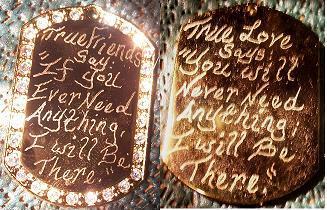 True Friends
Say,
"If You
Ever Need
Anything.
I will Be
There."
True Love
Says
"You will
Never Need
Anything
I will Be
There."